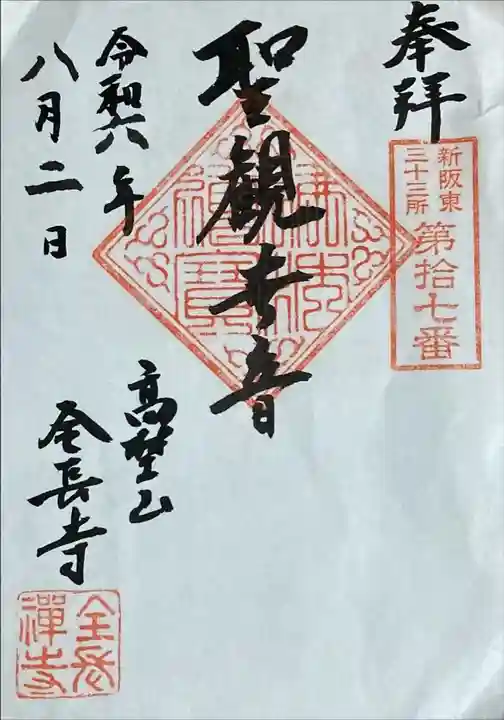 奉拝
新阪東
三十三所
第拾七番
聖観世音
佛法
僧寳
令和六年
八月二日
高埜山
全長寺
全長
禅寺